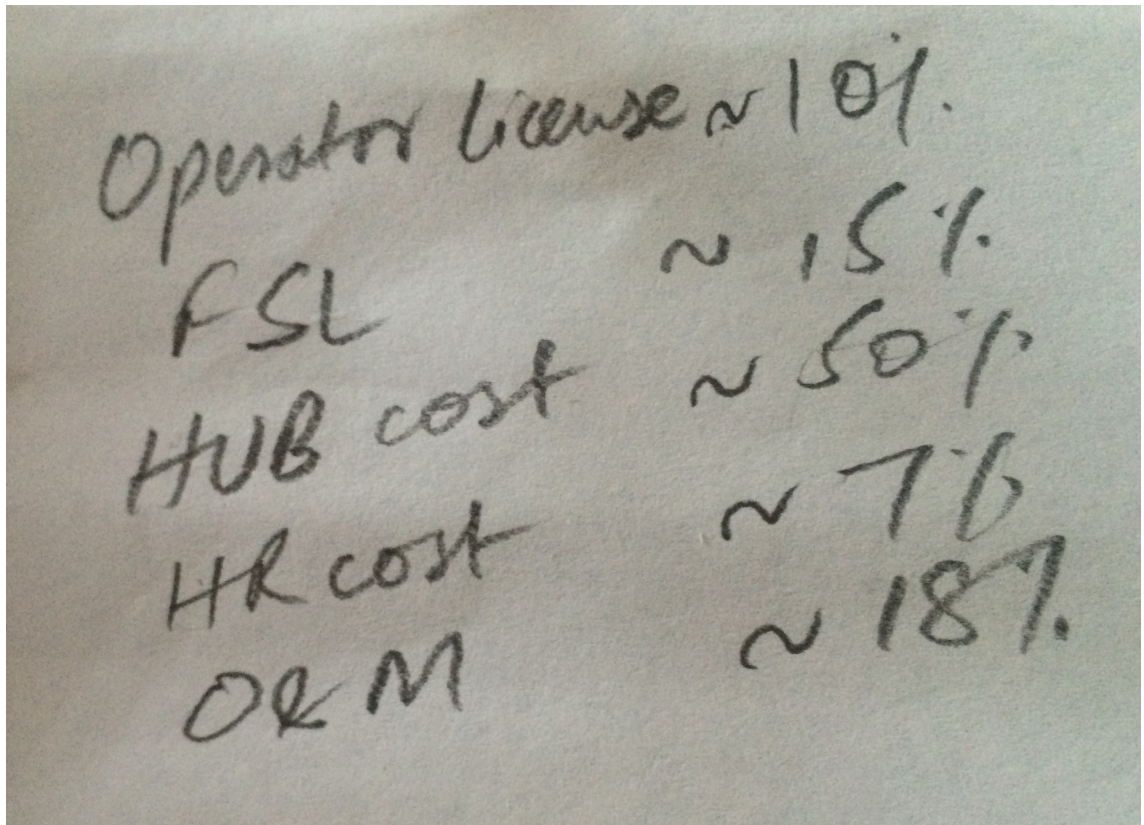 Operator license ~ 10%.
FSL ~ 15%.
HUB cost ~ 50%
HR cost ~ 7%
O&M ~ 18%.